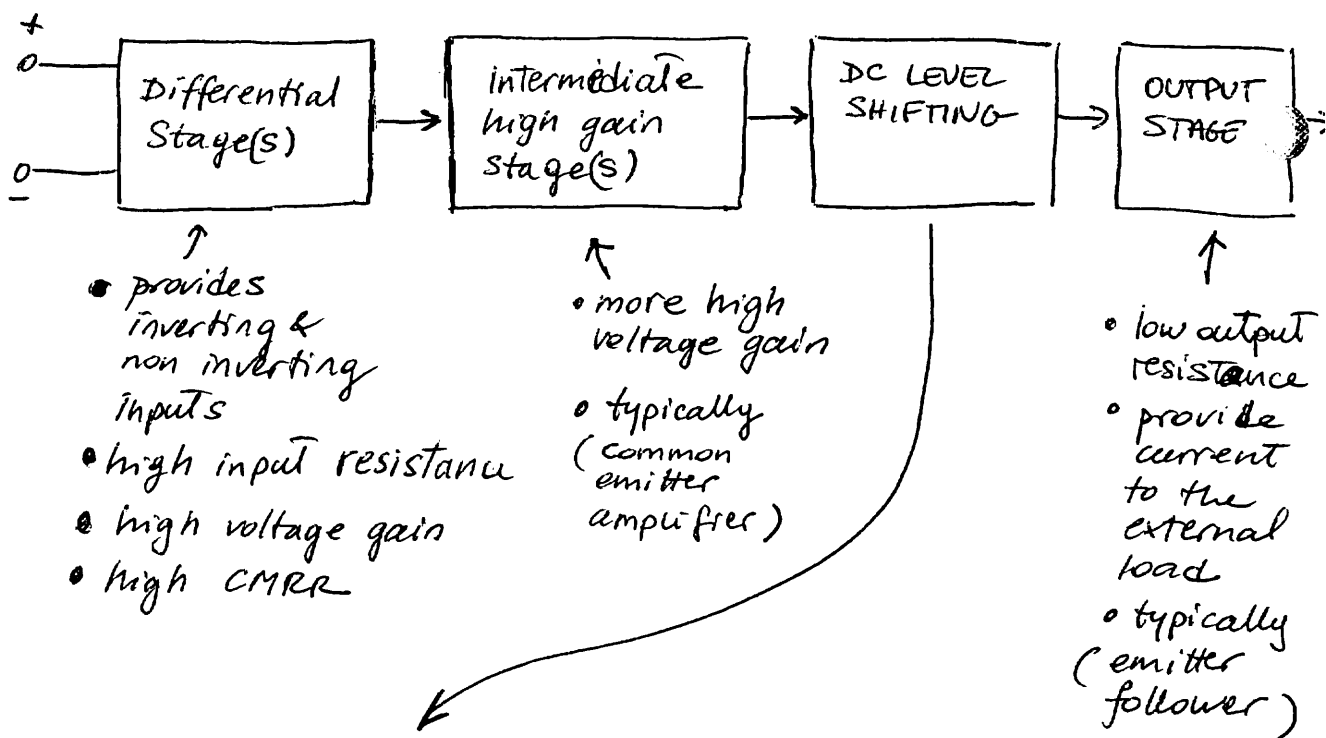 +
Differential
Stage(s)
intermediate
high gain
stage(s)
DC LEVEL
SHIFTING
OUTPUT
STAGE
−
• provides
inverting &
non inverting
inputs
• high input resistance
• high voltage gain
• high CMRR
• more high
voltage gain
• typically
(common
emitter
amplifier)
• low output
resistance
• provide
current
to the
external
load
• typically
(emitter
follower)